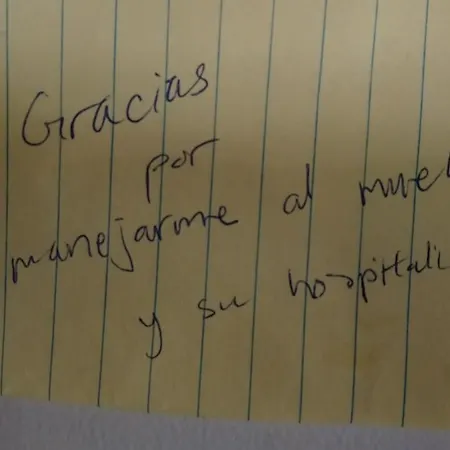 Gracias
por
manejarme al muel
y su hospitali